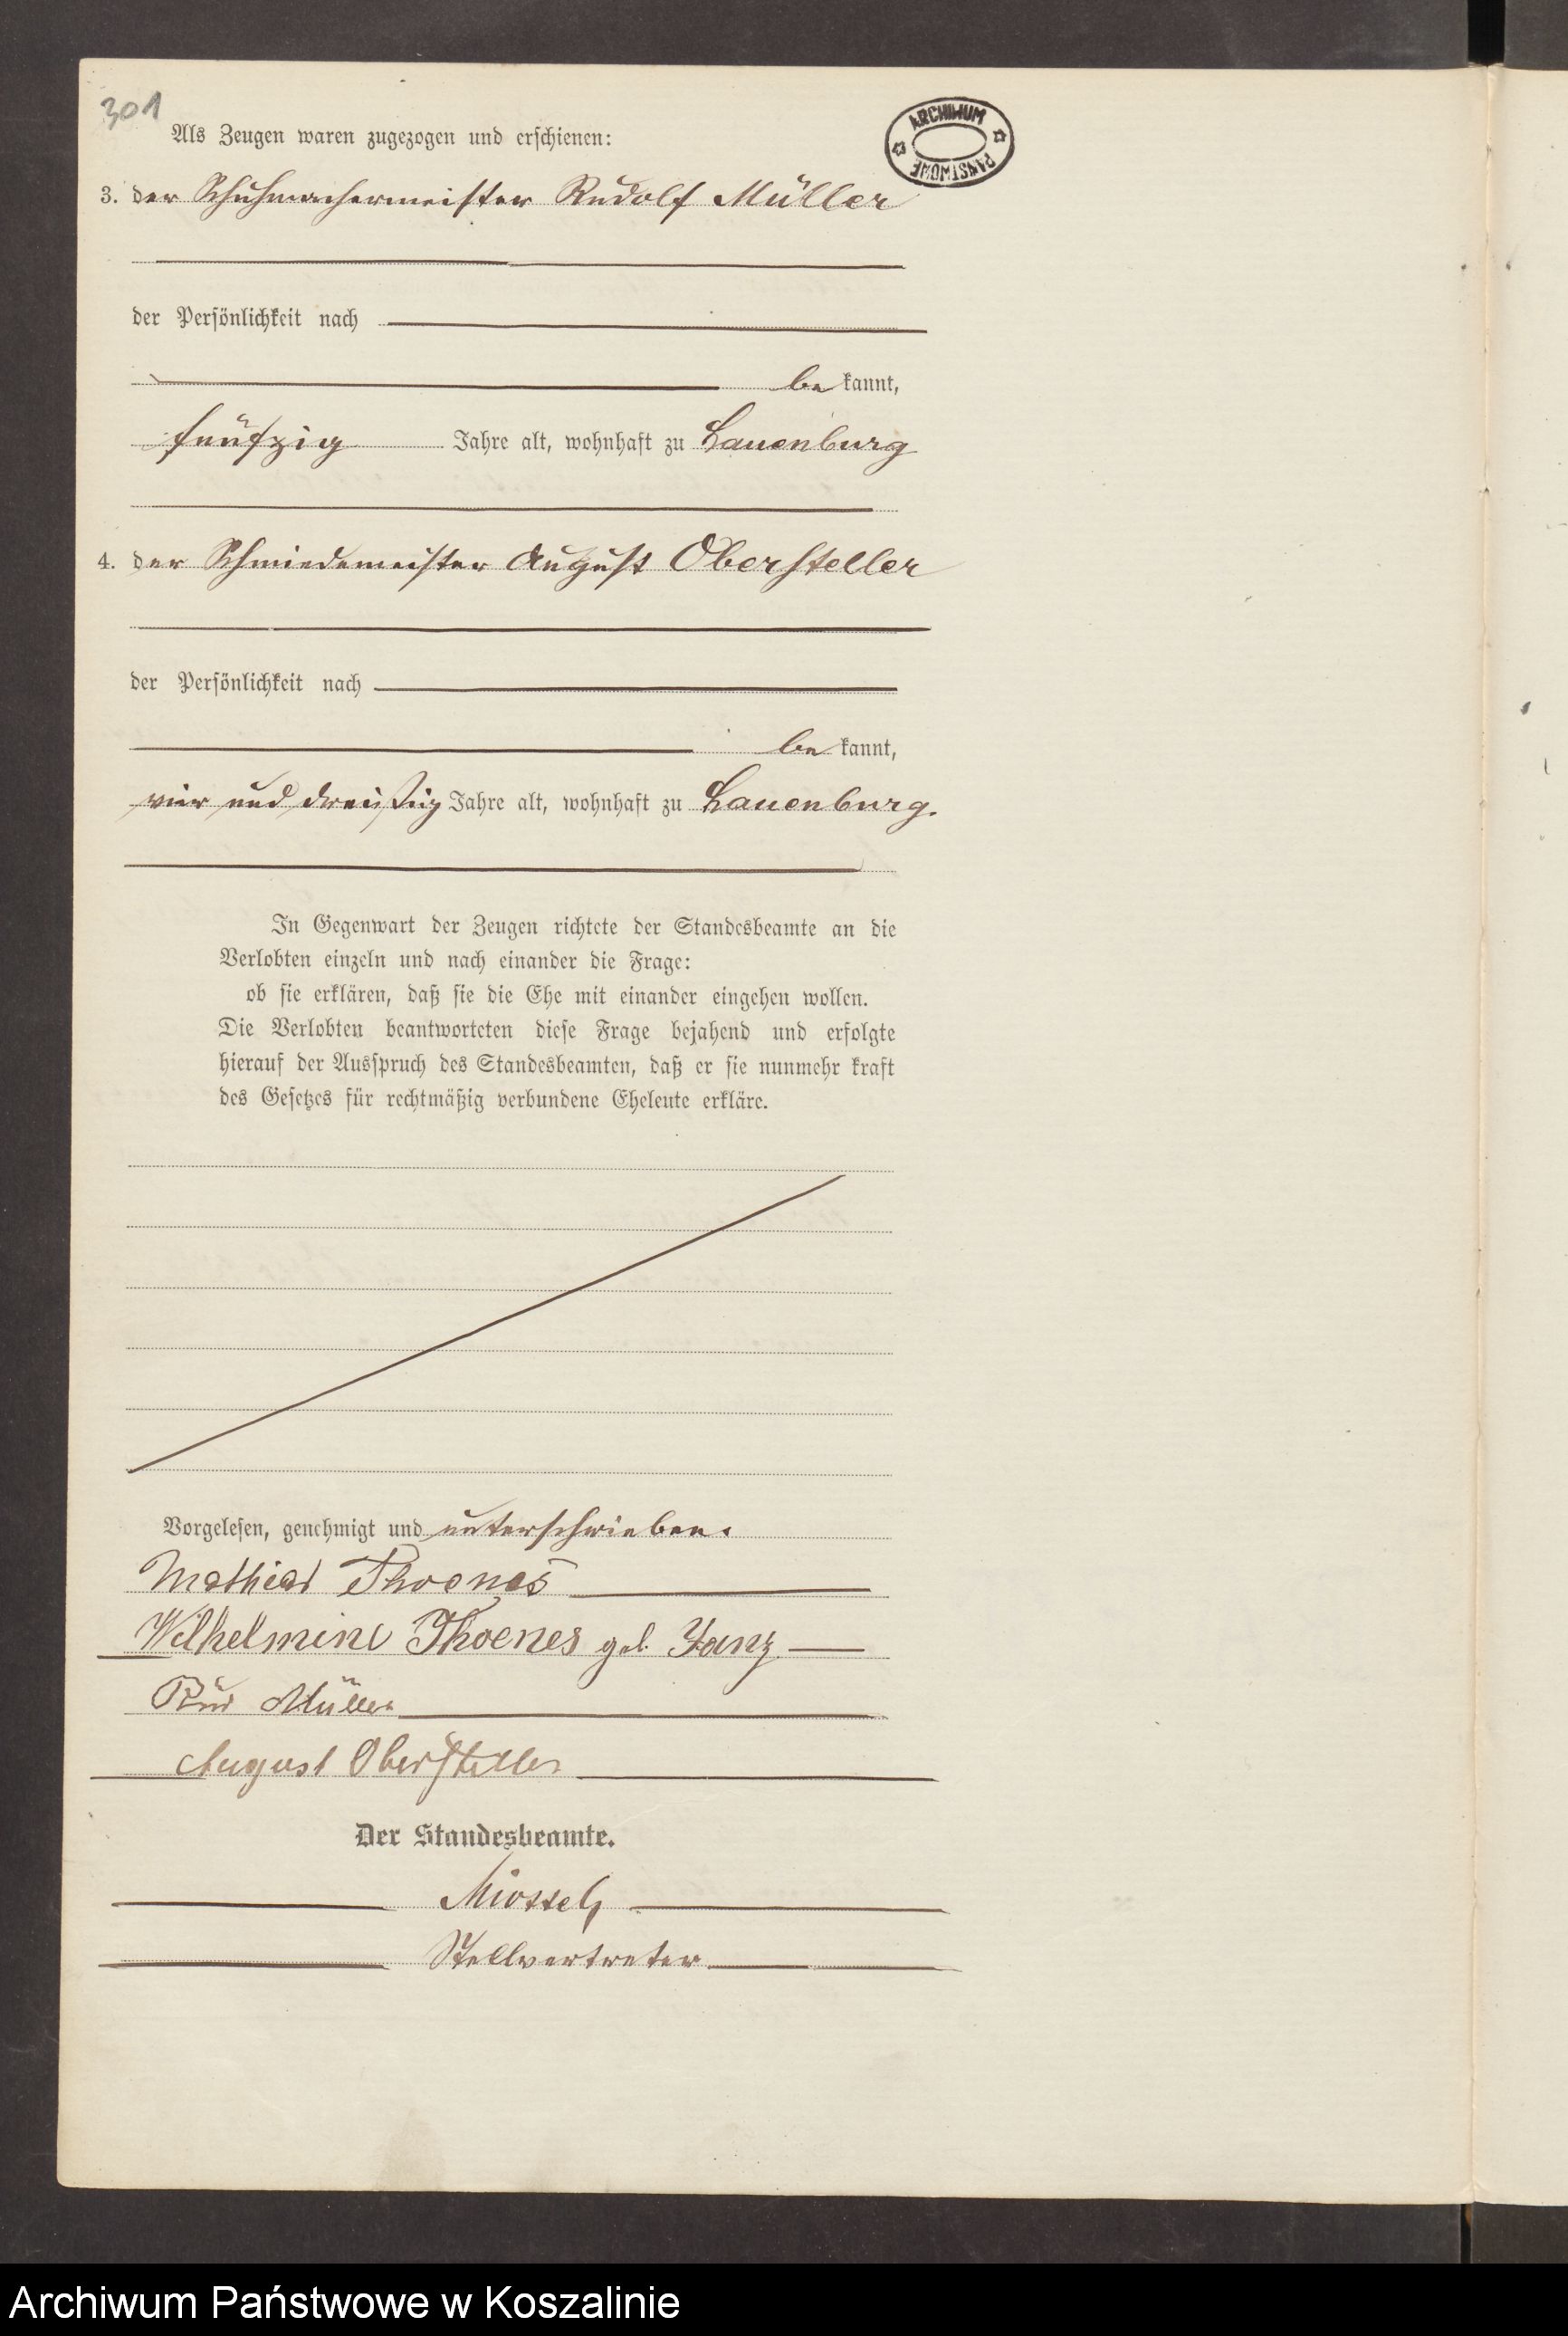 301
ARCHIWUM PAŃSTWOWE
Als Zeugen waren zugezogen und erschienen:
3. der Schuhmachermeister Rudolf Müller
der Persönlichkeit nach
be kannt,
fünfzig Jahre alt, wohnhaft zu Lauenburg
4. der Schmiedemeister August Obersteller
der Persönlichkeit nach
be kannt,
vier und dreißig Jahre alt, wohnhaft zu Lauenburg.
In Gegenwart der Zeugen richtete der Standesbeamte an die
Verlobten einzeln und nach einander die Frage:
ob sie erklären, daß sie die Ehe mit einander eingehen wollen.
Die Verlobten beantworteten diese Frage bejahend und erfolgte
hierauf der Ausspruch des Standesbeamten, daß er sie nunmehr kraft
des Gesetzes für rechtmäßig verbundene Eheleute erkläre.
Vorgelesen, genehmigt und unterschrieben.
Mathias Thoenes
Wilhelmine Thoenes geb. Janz
Rud Müller
August Obersteller
Der Standesbeamte.
Stellvertreter
Archiwum Państwowe w Koszalinie